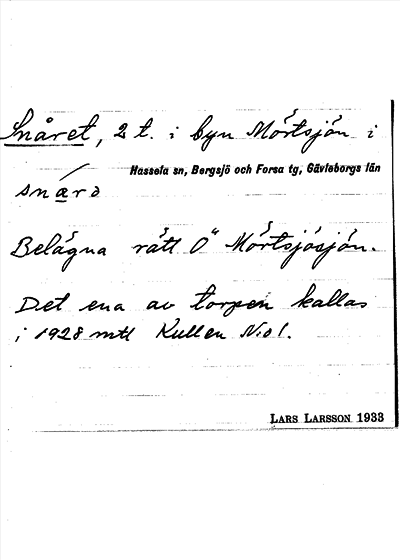 Snåret, 2 t. i byn Mörtsjön i
Hassela sn, Bergsjö och Forsa tg, Gävleborgs län
snárə
Belägna rätt Ö" Mörtsjösjön.
Det ena av torpen kallas
i 1928 mtl Kullen N:o 1.
LARS LARSSON 1933